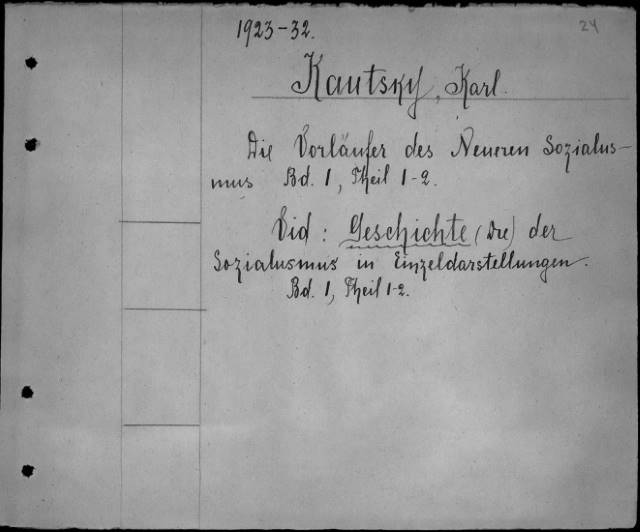 1923-32.
24
Kautsky, Karl.
Die Vorläufer des Neueren Sozialus-
mus Bd. 1, Theil 1-2.
Vid: Geschichte (Die) der
Sozialusmus in Einzeldarstellungen.
Bd. 1, Theil 1-2.